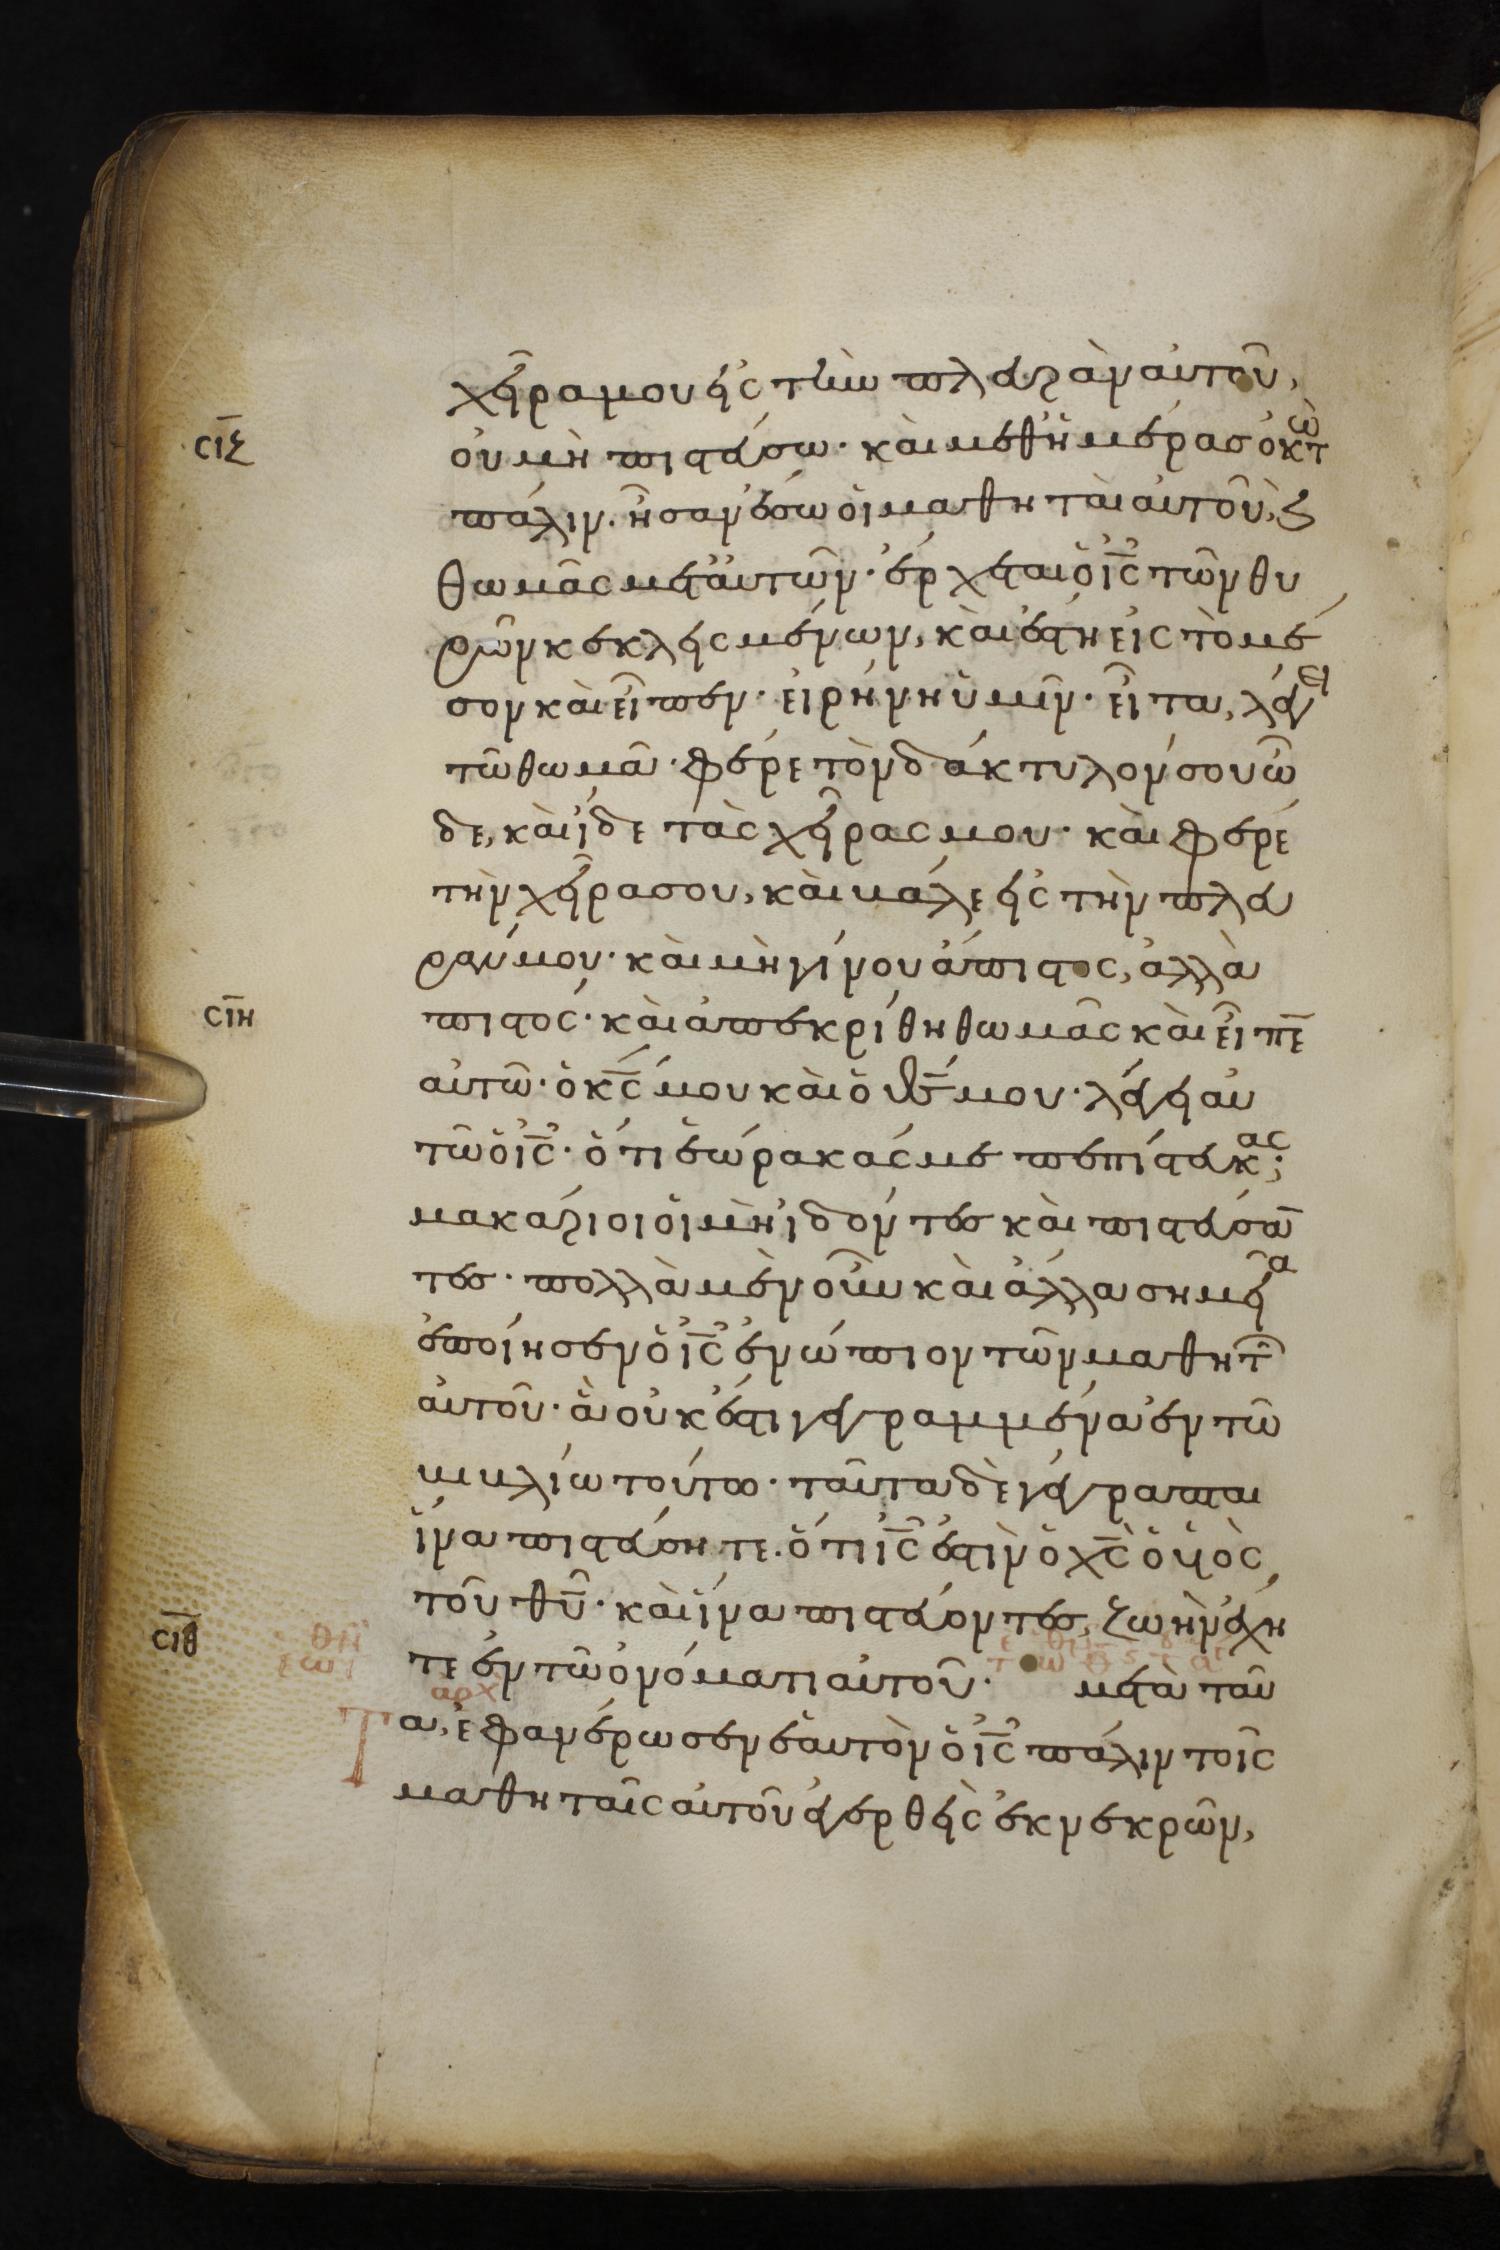 χεῖρα μου εἰς τὴν πλευρὰν αὐτοῦ,
σιζ οὐ μὴ πιστεύσω· καὶ μεθ ἡμέρας ὀκτὼ
πάλιν ἦσαν ἔσω οἱ μαθηταὶ αὐτοῦ, ϗ
θωμᾶς μετ αὐτῶν· ἔρχεται ὁ ις τῶν θυ
ρῶν κεκλεισμένων, καὶ ἔστη εἰς τὸ μέ
σον καὶ εἶπεν· εἰρήνη ὑμῖν· εἶτα, λέγει
τῶ θωμᾶ· φέρε τὸν δάκτυλόν σου ὧ
δε, καὶ ἴδε τὰς χεῖρας μου· καὶ φέρε
τὴν χεῖρα σου, καὶ βάλε εἰς τὴν πλευ
ράν μου· καὶ μὴ γίνου ἄπιστος, ἀλλὰ
σιη πιστός· καὶ ἀπεκρίθη θωμᾶς καὶ εἶπε
αὐτῶ· ὁ κς μου καὶ ὁ θς μου· λέγει αὐ
τῶ ὁ ις· ὅτι ἑώρακάς με πεπίστευκας;
μακάριοι οἱ μὴ ἰδόντες καὶ πιστεύσαν
τες· πολλὰ μὲν οὖν καὶ ἄλλα σημεῖα
ἐποίησεν ὁ ις ἐνώπιον τῶν μαθητῶν
αὐτοῦ· ἃ οὐκ ἔστι γεγραμμένα ἐν τῶ
βιβλίω τούτω· ταῦτα δὲ γέγραπται
ἵνα πιστεύσητε. ὅτι ις ἐστὶν ὁ χς ὁ υἱὸς
τοῦ θυ· καὶ ἵνα πιστεύοντες, ζωὴν ἔχη
σιθ τε ἐν τῶ ὀνόματι αὐτοῦ· μετὰ ταῦ
αρχ
τα, ἐφανέρωσεν ἑαυτὸν ὁ ις πάλιν τοῖς
μαθηταῖς αὐτοῦ ἐγερθεὶς ἐκ νεκρῶν,